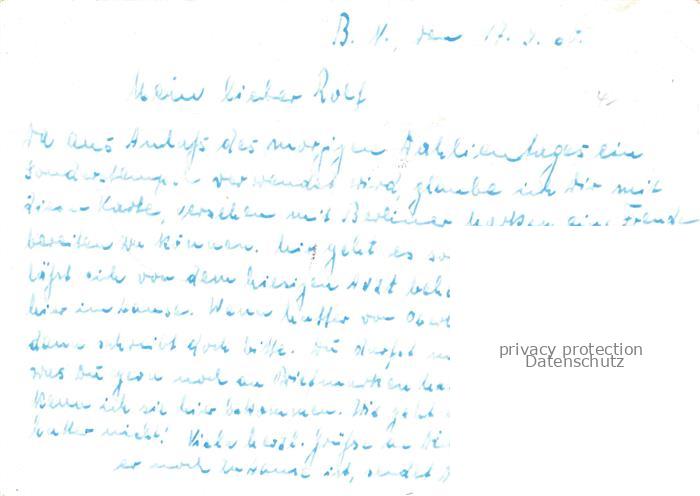 B. N., den 17. 9. 
Mein lieber Rolf
Da aus Anlaß des morgigen Dahlientages ein
Sonderstempel verwendet wird, glaube ich Dir mit
dieser Karte, versehen mit Berliner Marken eine Freude
bereiten zu können. geht es so
läßt sich von dem hiesigen Arzt
hier im Hause. Wenn von
dann schreibt doch bitte. Du darfst
was Du gern noch an Briefmarken
kann ich sie hier bekommen. geht
nicht! Viele herzl. Grüße
er noch zuhause ist, sendet
privacy protection
Datenschutz